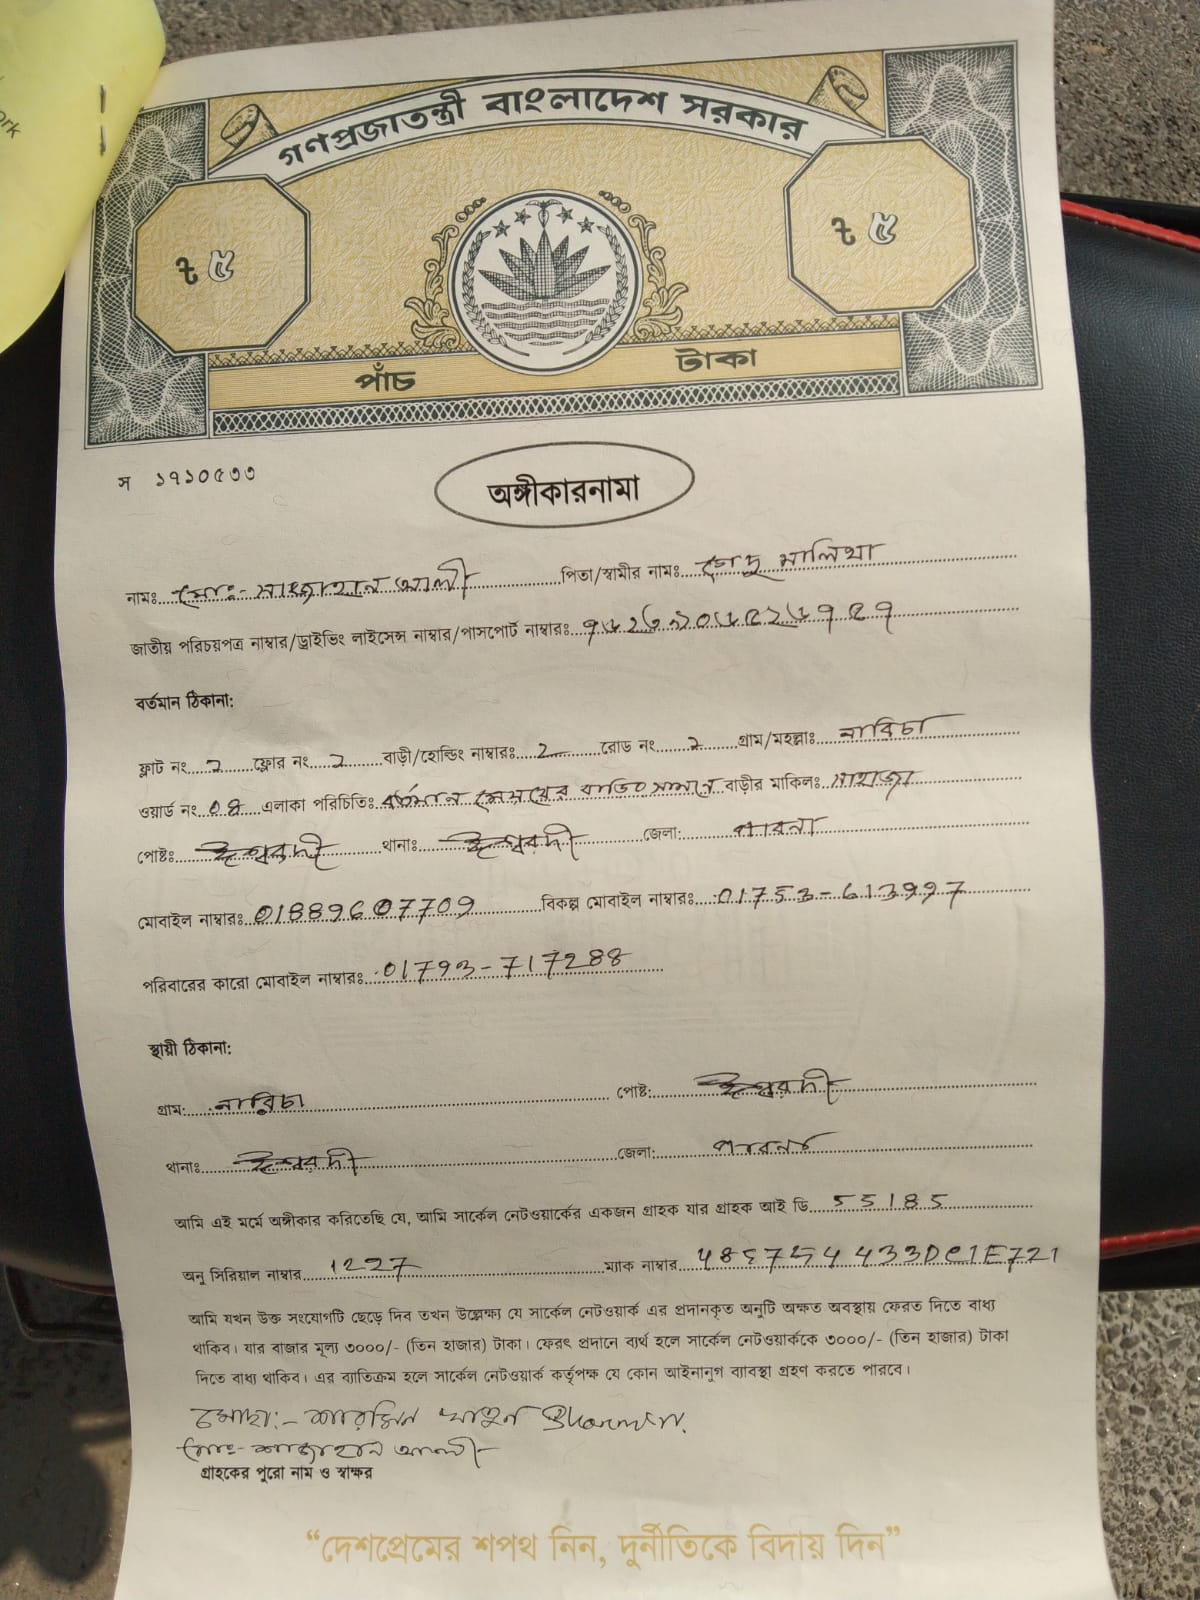 ork
গণপ্রজাতন্ত্রী বাংলাদেশ সরকার
৳ ৫ ৳ ৫
পাঁচ টাকা
স ১৭১০৫৩৩
অঙ্গীকারনামা
নামঃ মোঃ- সাজাহান আলী পিতা/স্বামীর নামঃ মালিথা
জাতীয় পরিচয়পত্র নাম্বার/ড্রাইভিং লাইসেন্স নাম্বার/পাসপোর্ট নাম্বারঃ
বর্তমান ঠিকানা:
ফ্লাট নং 2 ফ্লোর নং 2 বাড়ী/হোল্ডিং নাম্বারঃ 2 রোড নং 2 গ্রাম/মহল্লাঃ নারিচা
ওয়ার্ড নং 08 এলাকা পরিচিতিঃ বর্তমান মেয়রের বাড়ির সামনে বাড়ীর মাকিলঃ
পোষ্টঃ ঈশ্বরদী থানাঃ ঈশ্বরদী জেলা: পাবনা
মোবাইল নাম্বারঃ 01889607709 বিকল্প মোবাইল নাম্বারঃ 01753-613997
পরিবারের কারো মোবাইল নাম্বারঃ 01793-717288
স্থায়ী ঠিকানা:
গ্রাম: নারিচা পোষ্ট: ঈশ্বরদী
থানাঃ ঈশ্বরদী জেলা: পাবনা
আমি এই মর্মে অঙ্গীকার করিতেছি যে, আমি সার্কেল নেটওয়ার্কের একজন গ্রাহক যার গ্রাহক আই ডি 55185
অনু সিরিয়াল নাম্বার 1227 ম্যাক নাম্বার
আমি যখন উক্ত সংযোগটি ছেড়ে দিব তখন উল্লেক্ষ্য যে সার্কেল নেটওয়ার্ক এর প্রদানকৃত অনুটি অক্ষত অবস্থায় ফেরত দিতে বাধ্য
থাকিব। যার বাজার মূল্য ৩০০০/- (তিন হাজার) টাকা। ফেরৎ প্রদানে ব্যর্থ হলে সার্কেল নেটওয়ার্ককে ৩০০০/- (তিন হাজার) টাকা
দিতে বাধ্য থাকিব। এর ব্যতিক্রম হলে সার্কেল নেটওয়ার্ক কর্তৃপক্ষ যে কোন আইনানুগ ব্যাবস্থা গ্রহণ করতে পারবে।
মোছা:- শারমিন খাতুন
মোঃ- শাজাহান আলী
গ্রাহকের পুরো নাম ও স্বাক্ষর
“দেশপ্রেমের শপথ নিন, দুর্নীতিকে বিদায় দিন”